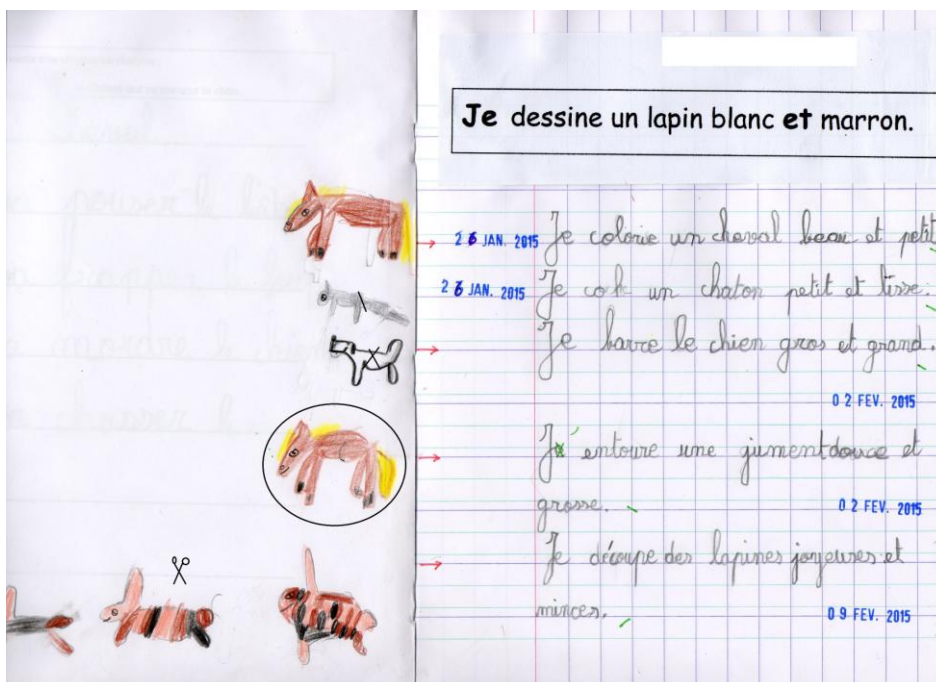 Je dessine un lapin blanc et marron.
26 JAN. 2015 Je colorie un cheval beau et petit
26 JAN. 2015 Je coche un chaton petit et lisse.
Je barre le chien gros et grand.
02 FEV. 2015
J' entoure une jument douce et
grosse. 02 FEV. 2015
Je découpe des lapines joyeuses et
minces. 09 FEV. 2015